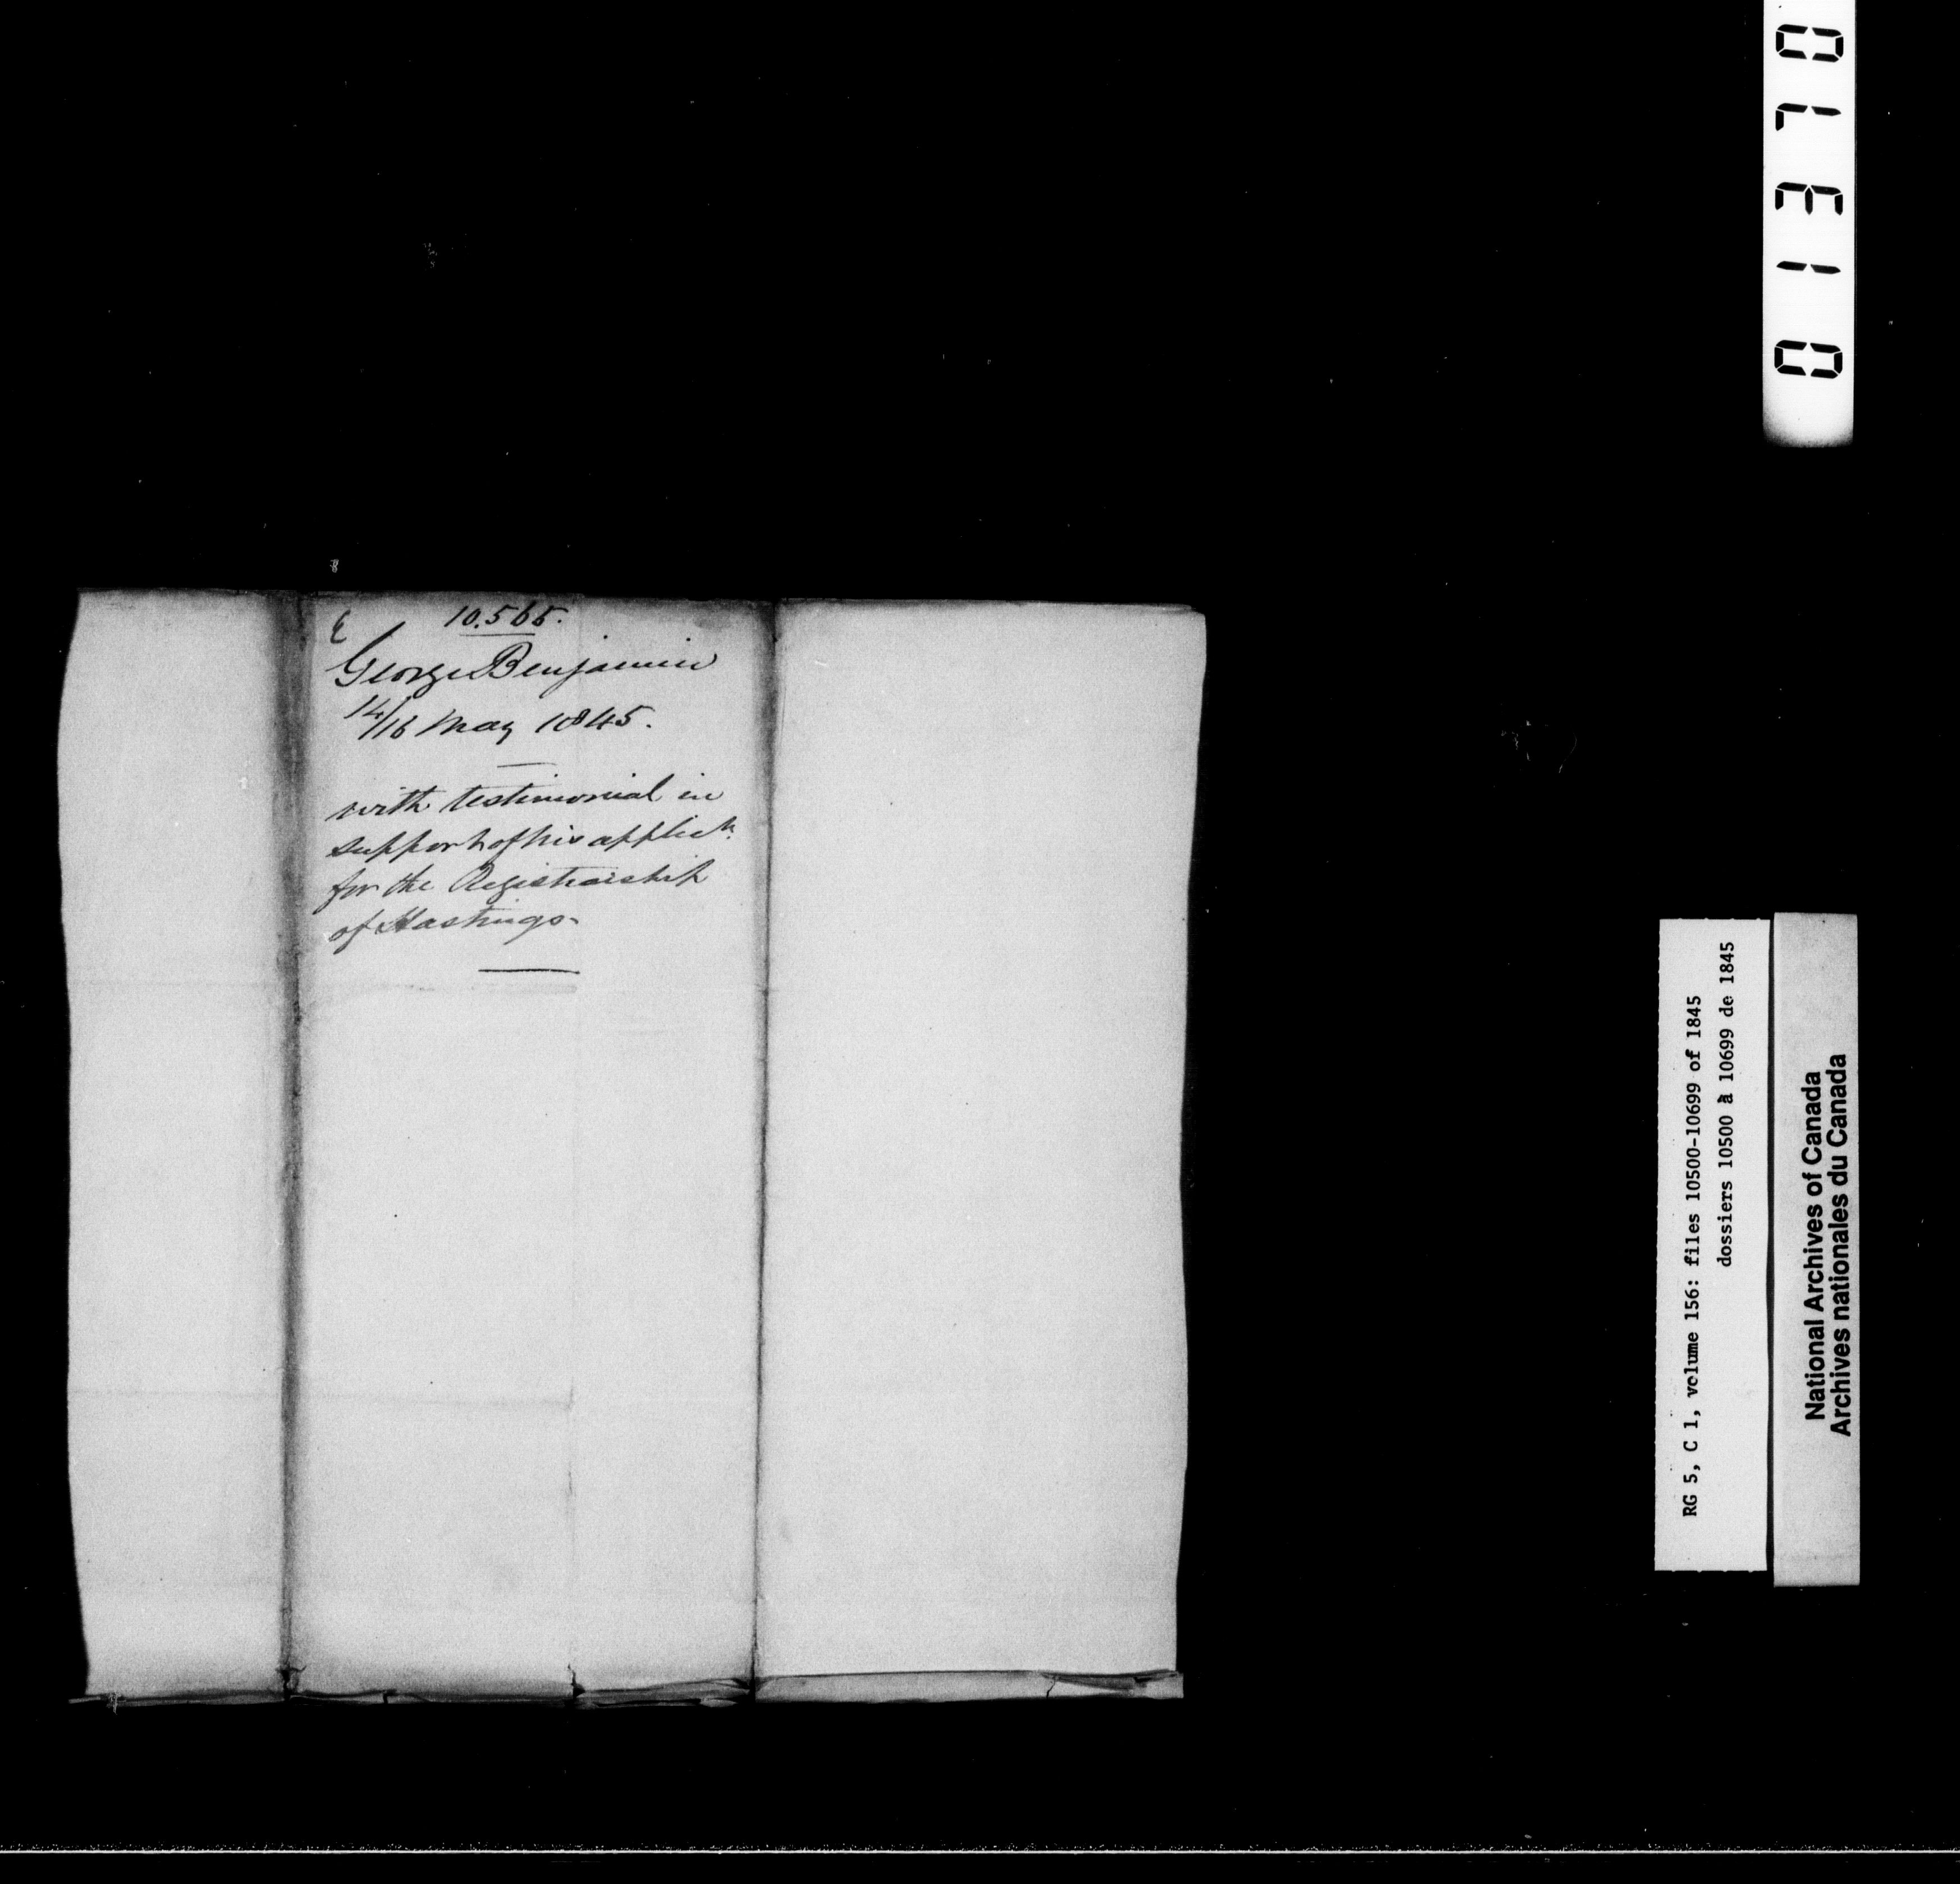 10.565.
George Benjamin
14/16 May 1845.
with testimonial in
support of his applicn.
for the Registrarship
of Hastings-
RG 5, C 1, volume 156: files 10500-10699 of 1845
dossiers 10500 à 10699 de 1845
National Archives of Canada
Archives nationales du Canada